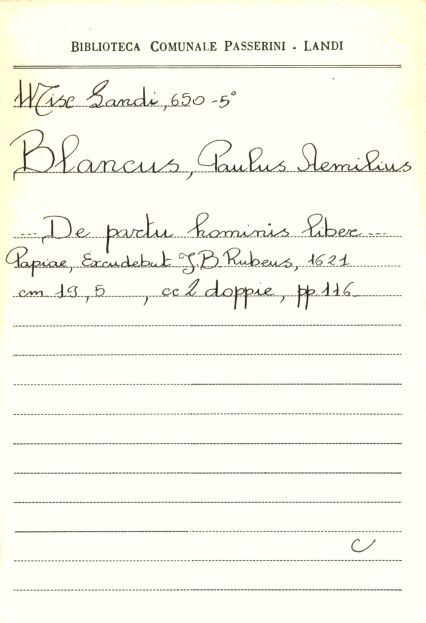 BIBLIOTECA COMUNALE PASSERINI - LANDI
Misc Landi, 650-5°
Blancus, Paulus Aemilius
--- De partu hominis liber ---
Papiae, Excudebat J.B. Rubeus, 1621
cm 19,5 , cc 2 doppie, pp 116
C